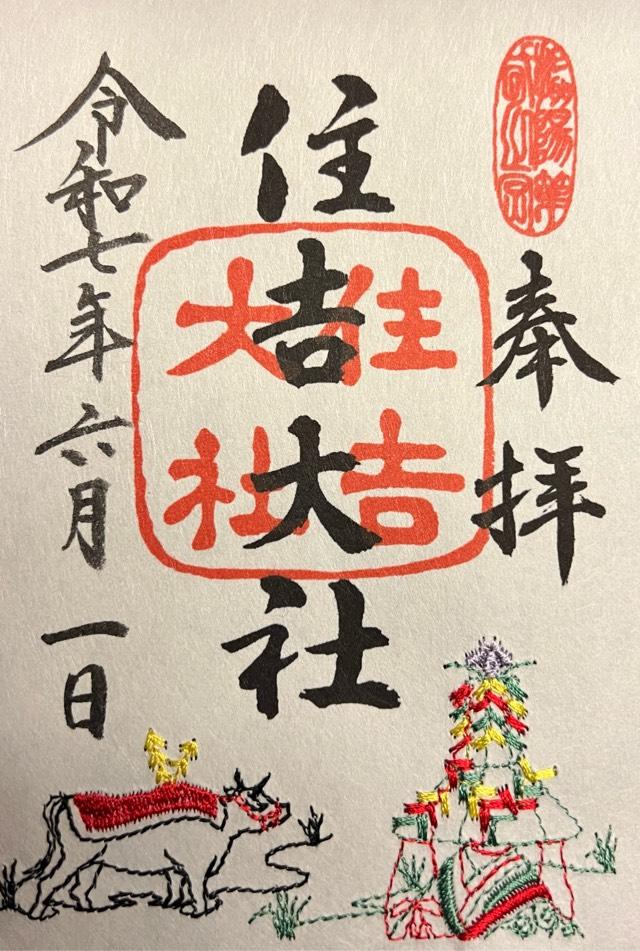 奉拝
住吉大社
住吉大社
令和七年六月一日